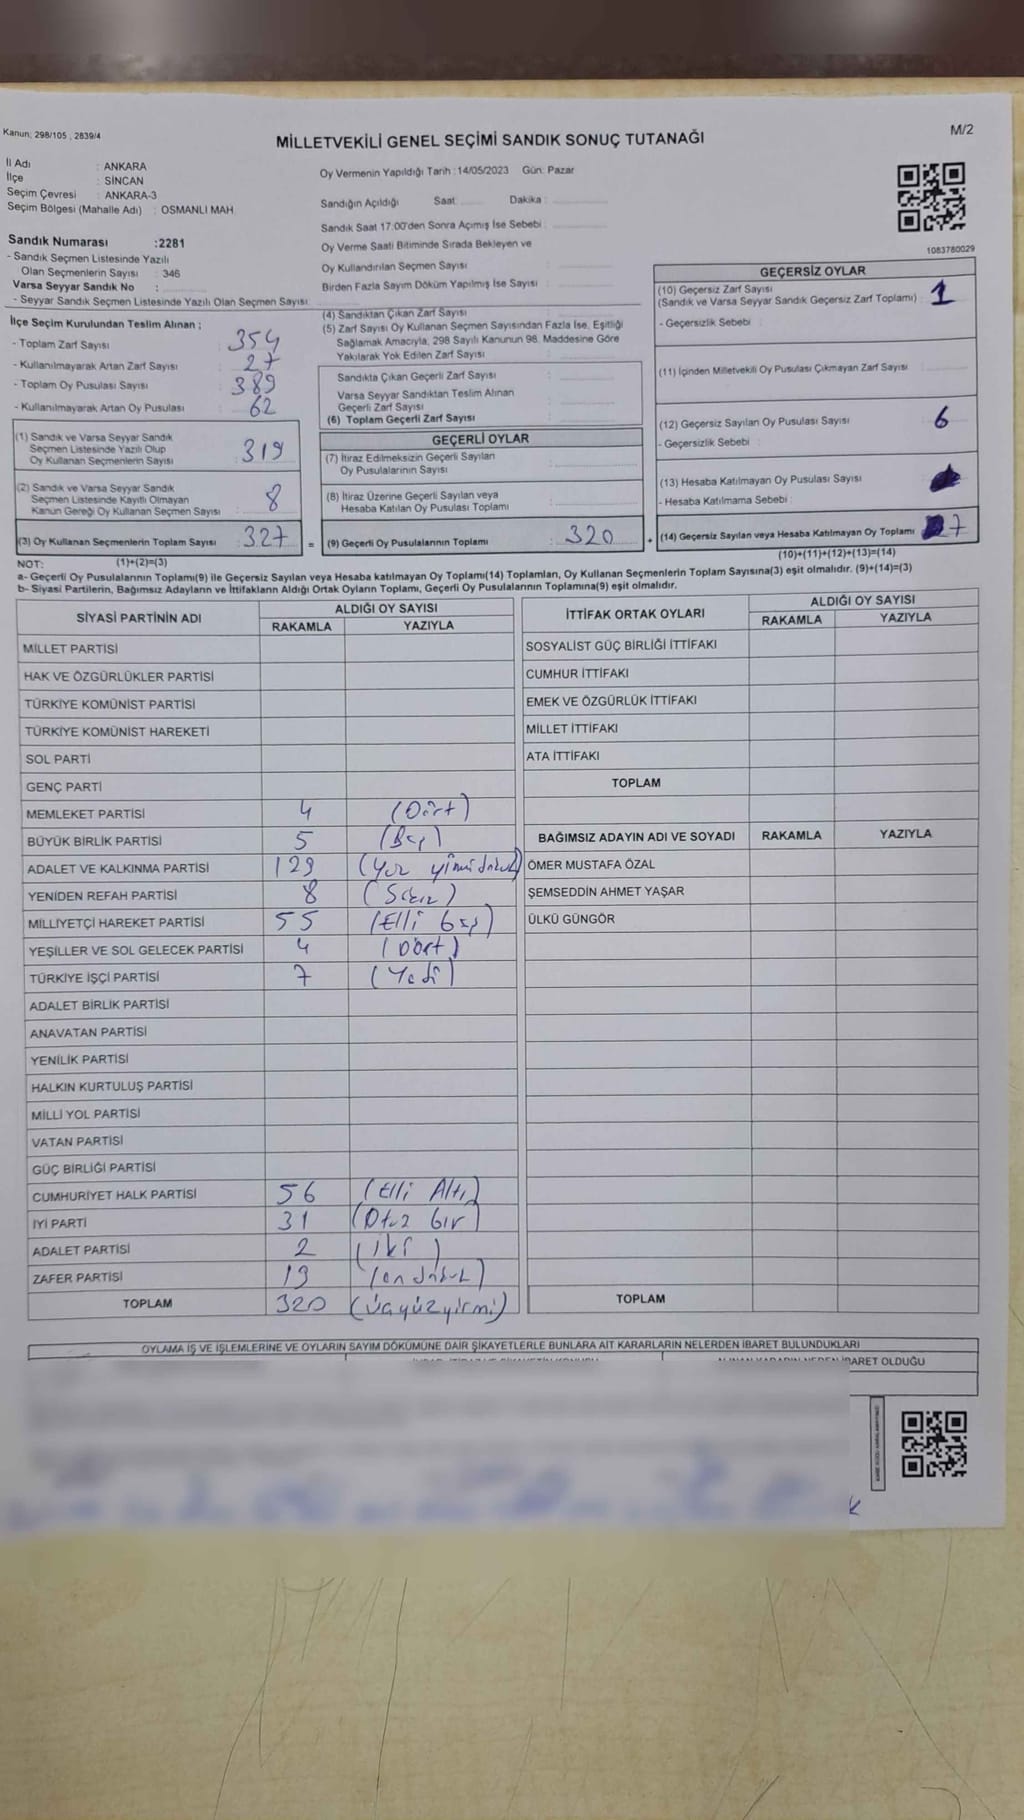 Kanun; 298/105 , 2839/4
MİLLETVEKİLİ GENEL SEÇİMİ SANDIK SONUÇ TUTANAĞI
M/2
İl Adı : ANKARA
İlçe : SİNCAN
Seçim Çevresi : ANKARA-3
Seçim Bölgesi (Mahalle Adı) : OSMANLI MAH
Oy Vermenin Yapıldığı Tarih :14/05/2023 Gün: Pazar
Sandığın Açıldığı Saat Dakika :
Sandık Saat 17:00'den Sonra Açımış İse Sebebi :
Oy Verme Saati Bitiminde Sırada Bekleyen ve
Oy Kullandırılan Seçmen Sayısı :
Birden Fazla Sayım Döküm Yapılmış İse Sayısı :
1083780029
Sandık Numarası :2281
- Sandık Seçmen Listesinde Yazılı
Olan Seçmenlerin Sayısı : 346
Varsa Seyyar Sandık No :
- Seyyar Sandık Seçmen Listesinde Yazılı Olan Seçmen Sayısı:
İlçe Seçim Kurulundan Teslim Alınan :
- Toplam Zarf Sayısı : 354
- Kullanılmayarak Artan Zarf Sayısı : 27
- Toplam Oy Pusulası Sayısı : 389
- Kullanılmayarak Artan Oy Pusulası : 62
(1) Sandık ve Varsa Seyyar Sandık
Seçmen Listesinde Yazılı Olup
Oy Kullanan Seçmenlerin Sayısı : 319
(2) Sandık ve Varsa Seyyar Sandık
Seçmen Listesinde Kayıtlı Olmayan
Kanun Gereği Oy Kullanan Seçmen Sayısı : 8
(3) Oy Kullanan Seçmenlerin Toplam Sayısı : 327
(1)+(2)=(3)
(4) Sandıktan Çıkan Zarf Sayısı :
(5) Zarf Sayısı Oy Kullanan Seçmen Sayısından Fazla İse, Eşitliği
Sağlamak Amacıyla, 298 Sayılı Kanunun 98. Maddesine Göre
Yakılarak Yok Edilen Zarf Sayısı :
Sandıkta Çıkan Geçerli Zarf Sayısı :
Varsa Seyyar Sandıktan Teslim Alınan
Geçerli Zarf Sayısı :
(6) Toplam Geçerli Zarf Sayısı :
GEÇERLİ OYLAR
(7) İtiraz Edilmeksizin Geçerli Sayılan
Oy Pusulalarının Sayısı :
(8) İtiraz Üzerine Geçerli Sayılan veya
Hesaba Katılan Oy Pusulası Toplamı :
= (9) Geçerli Oy Pusulalarının Toplamı : 320 +
GEÇERSİZ OYLAR
(10) Geçersiz Zarf Sayısı
(Sandık ve Varsa Seyyar Sandık Geçersiz Zarf Toplamı) : 1
- Geçersizlik Sebebi :
(11) İçinden Milletvekili Oy Pusulası Çıkmayan Zarf Sayısı :
(12) Geçersiz Sayılan Oy Pusulası Sayısı : 6
- Geçersizlik Sebebi :
(13) Hesaba Katılmayan Oy Pusulası Sayısı :
- Hesaba Katılmama Sebebi :
(14) Geçersiz Sayılan veya Hesaba Katılmayan Oy Toplamı : 7
(10)+(11)+(12)+(13)=(14)
NOT:
a- Geçerli Oy Pusulalarının Toplamı(9) ile Geçersiz Sayılan veya Hesaba katılmayan Oy Toplamı(14) Toplamları, Oy Kullanan Seçmenlerin Toplam Sayısına(3) eşit olmalıdır. (9)+(14)=(3)
b- Siyasi Partilerin, Bağımsız Adayların ve İttifakların Aldığı Ortak Oyların Toplamı, Geçerli Oy Pusulalarının Toplamına(9) eşit olmalıdır.
SİYASİ PARTİNİN ADI
ALDIĞI OY SAYISI
RAKAMLA YAZIYLA
MİLLET PARTİSİ
HAK VE ÖZGÜRLÜKLER PARTİSİ
TÜRKİYE KOMÜNİST PARTİSİ
TÜRKİYE KOMÜNİST HAREKETİ
SOL PARTİ
GENÇ PARTİ
MEMLEKET PARTİSİ 4 (Dört)
BÜYÜK BİRLİK PARTİSİ 5 (Beş)
ADALET VE KALKINMA PARTİSİ 129 (Yüz yirmi dokuz)
YENİDEN REFAH PARTİSİ 8 (Sekiz)
MİLLİYETÇİ HAREKET PARTİSİ 55 (Elli beş)
YEŞİLLER VE SOL GELECEK PARTİSİ 4 (Dört)
TÜRKİYE İŞÇİ PARTİSİ 7 (Yedi)
ADALET BİRLİK PARTİSİ
ANAVATAN PARTİSİ
YENİLİK PARTİSİ
HALKIN KURTULUŞ PARTİSİ
MİLLİ YOL PARTİSİ
VATAN PARTİSİ
GÜÇ BİRLİĞİ PARTİSİ
CUMHURİYET HALK PARTİSİ 56 (Elli Altı)
İYİ PARTİ 31 (Otuz bir)
ADALET PARTİSİ 2 (iki)
ZAFER PARTİSİ 19 (on dokuz)
TOPLAM 320 (üçyüzyirmi)
İTTİFAK ORTAK OYLARI
ALDIĞI OY SAYISI
RAKAMLA YAZIYLA
SOSYALİST GÜÇ BİRLİĞİ İTTİFAKI
CUMHUR İTTİFAKI
EMEK VE ÖZGÜRLÜK İTTİFAKI
MİLLET İTTİFAKI
ATA İTTİFAKI
TOPLAM
BAĞIMSIZ ADAYIN ADI VE SOYADI RAKAMLA YAZIYLA
ÖMER MUSTAFA ÖZAL
ŞEMSEDDİN AHMET YAŞAR
ÜLKÜ GÜNGÖR
TOPLAM
OYLAMA İŞ VE İŞLEMLERİNE VE OYLARIN SAYIM DÖKÜMÜNE DAİR ŞİKAYETLERLE BUNLARA AİT KARARLARIN NELERDEN İBARET BULUNDUKLARI
İBARET OLDUĞU